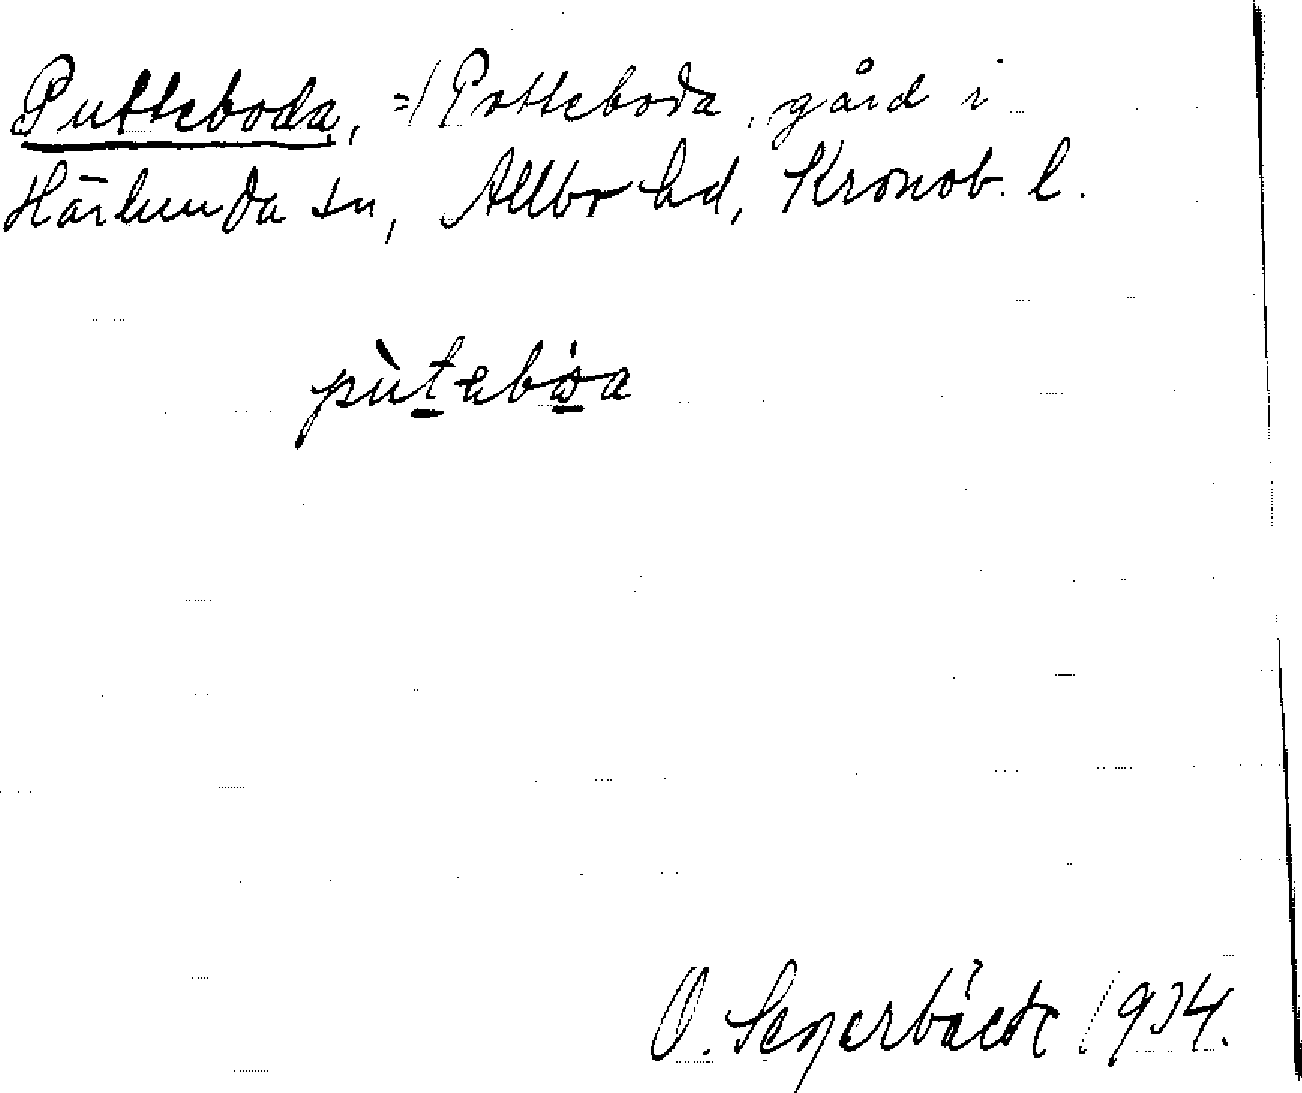 Putteboda, =/ Potteboda, gård i
Härlunda sn, Allbo hd, Kronob. l.
pùtebơa
O. Segerbäck 1934.